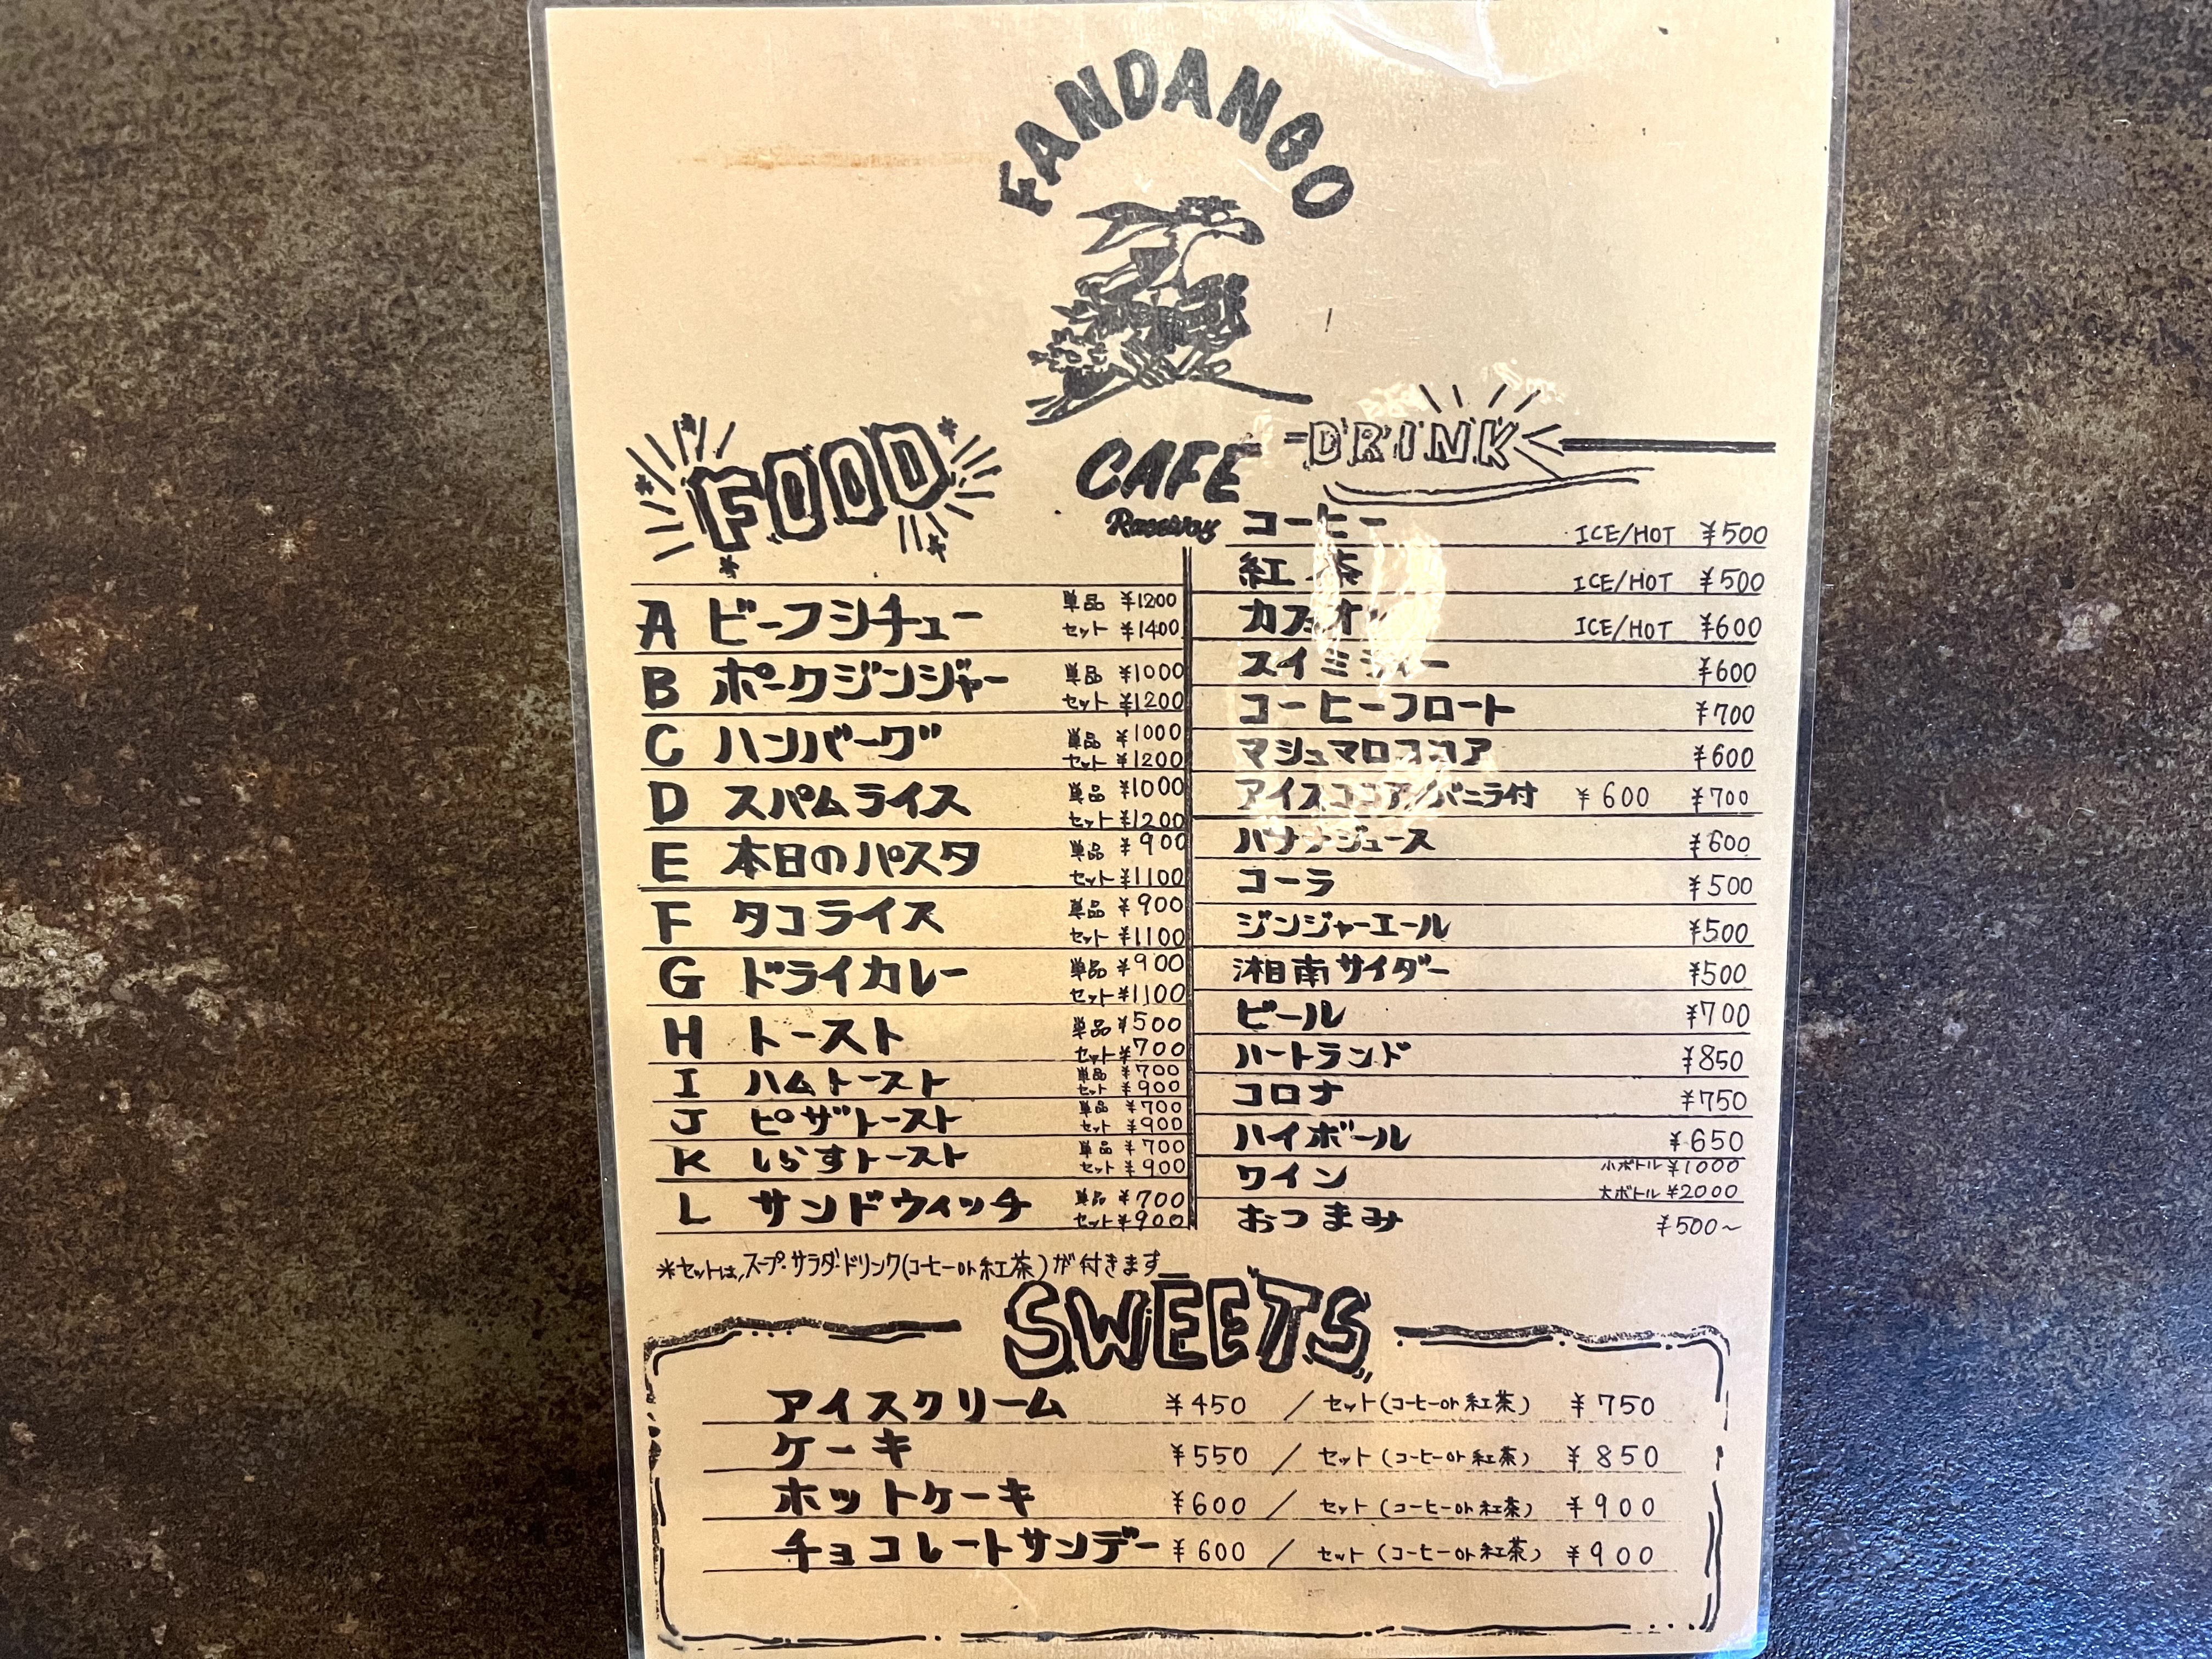 FANDANGO
CAFE
Raceway
FOOD
A ビーフシチュー 単品 ¥1200
セット ¥1400
B ポークジンジャー 単品 ¥1000
セット ¥1200
C ハンバーグ 単品 ¥1000
セット ¥1200
D スパムライス 単品 ¥1000
セット ¥1200
E 本日のパスタ 単品 ¥900
セット ¥1100
F タコライス 単品 ¥900
セット ¥1100
G ドライカレー 単品 ¥900
セット ¥1100
H トースト 単品 ¥500
セット ¥700
I ハムトースト 単品 ¥700
セット ¥900
J ピザトースト 単品 ¥700
セット ¥900
K しらすトースト 単品 ¥700
セット ¥900
L サンドウィッチ 単品 ¥700
セット ¥900
*セットは、スープ・サラダ・ドリンク(コーヒーor紅茶)が付きます
DRINK
コーヒー ICE/HOT ¥500
紅茶 ICE/HOT ¥500
カフェオレ ICE/HOT ¥600
スイミティー ¥600
コーヒーフロート ¥700
マシュマロココア ¥600
アイスココア/バニラ付 ¥600 ¥700
バナナジュース ¥600
コーラ ¥500
ジンジャーエール ¥500
湘南サイダー ¥500
ビール ¥700
ハートランド ¥850
コロナ ¥750
ハイボール ¥650
ワイン 小ボトル ¥1000
大ボトル ¥2000
おつまみ ¥500~
SWEETS
アイスクリーム ¥450 / セット(コーヒーor紅茶) ¥750
ケーキ ¥550 / セット(コーヒーor紅茶) ¥850
ホットケーキ ¥600 / セット(コーヒーor紅茶) ¥900
チョコレートサンデー ¥600 / セット(コーヒーor紅茶) ¥900